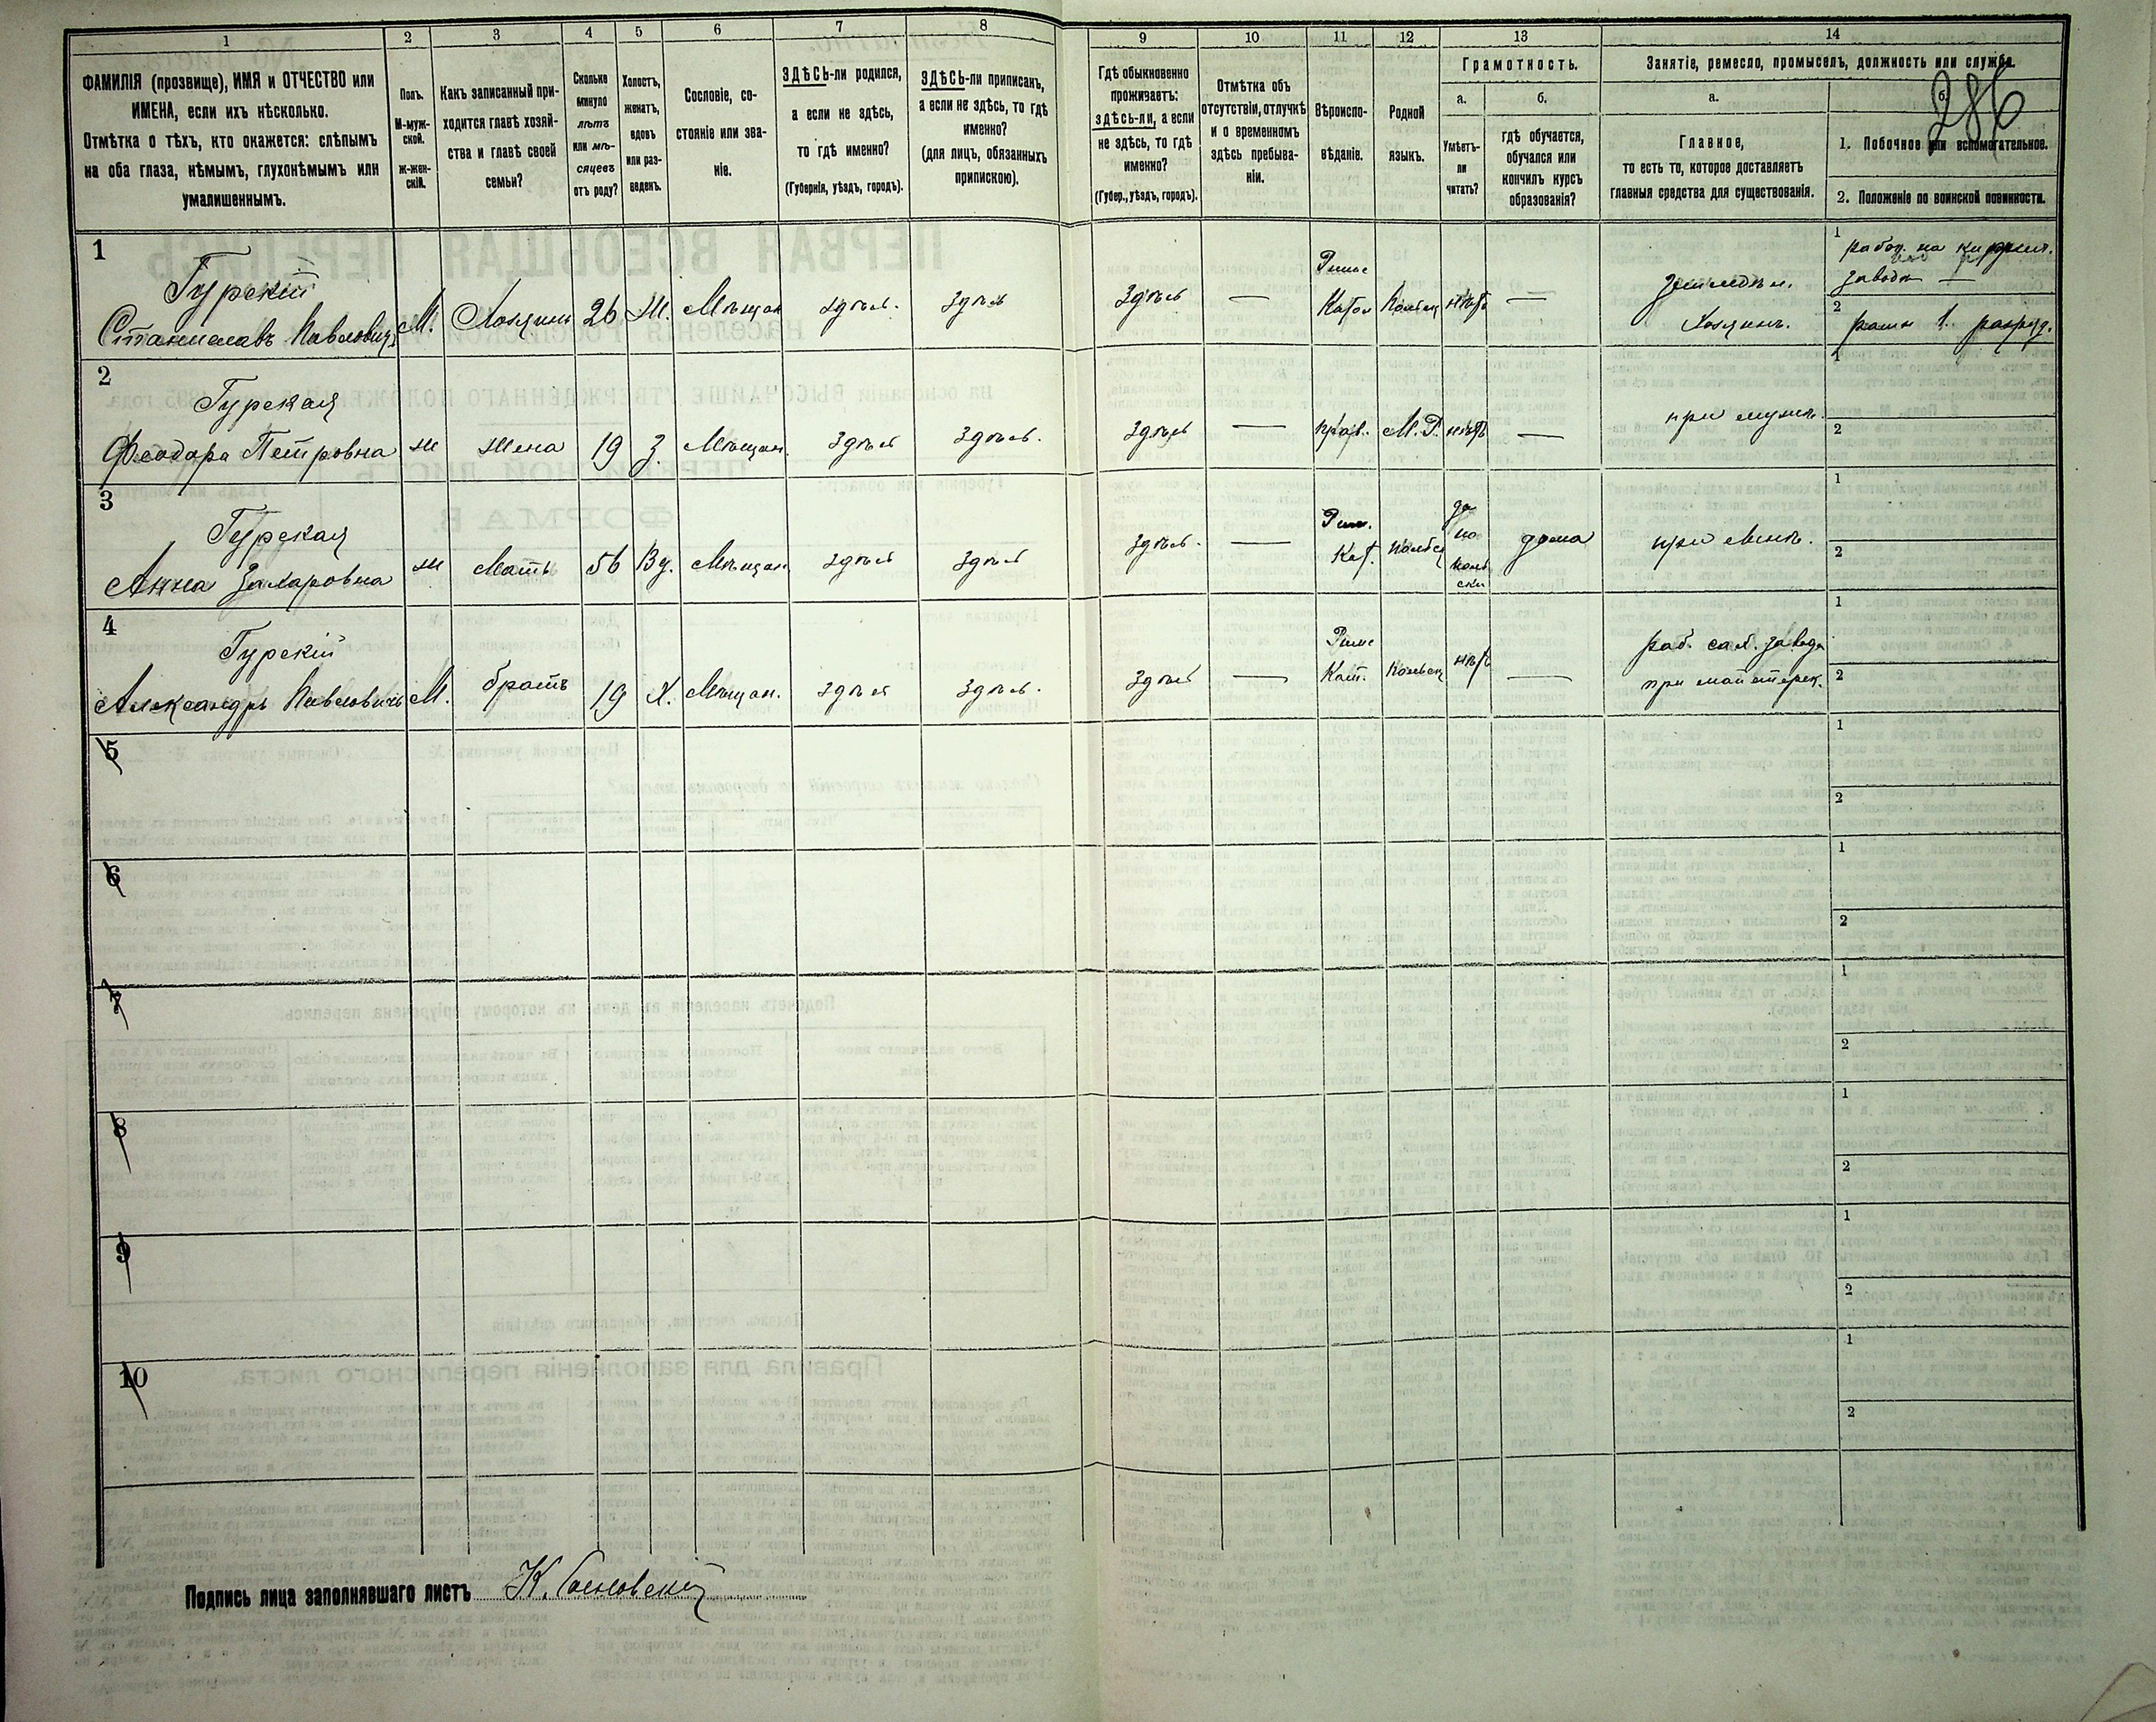 1 2 3 4 5 6 7 8 9 10 11 12 13 14
286
ФАМИЛІЯ (прозвище), ИМЯ и ОТЧЕСТВО или
ИМЕНА, если ихъ нѣсколько.
Отмѣтка о тѣхъ, кто окажется: слѣпымъ
на оба глаза, нѣмымъ, глухонѣмымъ или
умалишеннымъ.
Полъ.
М-муж-
ской.
ж-жен-
скій.
Какъ записанный при-
ходится главѣ хозяй-
ства и главѣ своей
семьи?
Сколько
минуло
лѣтъ
или мѣ-
сяцевъ
отъ роду?
Холостъ,
женатъ,
вдовъ
или раз-
веденъ.
Сословіе, со-
стояніе или зва-
ніе.
ЗДѢСЬ-ли родился,
а если не здѣсь,
то гдѣ именно?
(Губернія, уѣздъ, городъ).
ЗДѢСЬ-ли приписанъ,
а если не здѣсь, то гдѣ
именно?
(для лицъ, обязанныхъ
припискою).
Гдѣ обыкновенно
проживаетъ:
здѣсь-ли, а если
не здѣсь, то гдѣ
именно?
(Губер., уѣздъ, городъ).
Отмѣтка объ
отсутствіи, отлучкѣ
и о временномъ
здѣсь пребыва-
ніи.
Вѣроиспо-
вѣданіе.
Родной
языкъ.
Грамотность.
а.
Умѣетъ-
ли
читать?
б.
гдѣ обучается,
обучался или
кончилъ курсъ
образованія?
Занятіе, ремесло, промыселъ, должность или служба.
а.
Главное,
то есть то, которое доставляетъ
главныя средства для существованія.
б.
1. Побочное или вспомогательное.
2. Положеніе по воинской повинности.
1
Гурскій
Станиславъ Павловичъ
М. Хозяинъ 26 Ж. Мѣщан здѣсь. здѣсь
здѣсь — Римс
Катол Польск нѣтъ —
Земледѣл.
Хозяинъ.
1 работ. на
заводѣ —
2 ратн 1. разряд.
2
Гурская
Феодора Петровна
ж жена 19 З. Мѣщан. здѣсь здѣсь.
здѣсь — прав. М.Р. нѣтъ —
при мужѣ.
1
2
3
Гурская
Анна Захаровна
ж Мать 56 Вд. Мѣщан. здѣсь здѣсь
здѣсь. — Рим.
Кат. польск
да
по
поль
ски
дома
при
1
2
4
Гурскій
Александръ Павловичъ
М. братъ 19 Х. Мѣщан. здѣсь здѣсь.
здѣсь — Римс
Кат. польск нѣтъ —
раб. сах. завода
при
1
2
5
1
2
6
1
2
7
1
2
8
1
2
9
1
2
10
1
2
Подпись лица заполнявшаго листъ К. Сосновскій